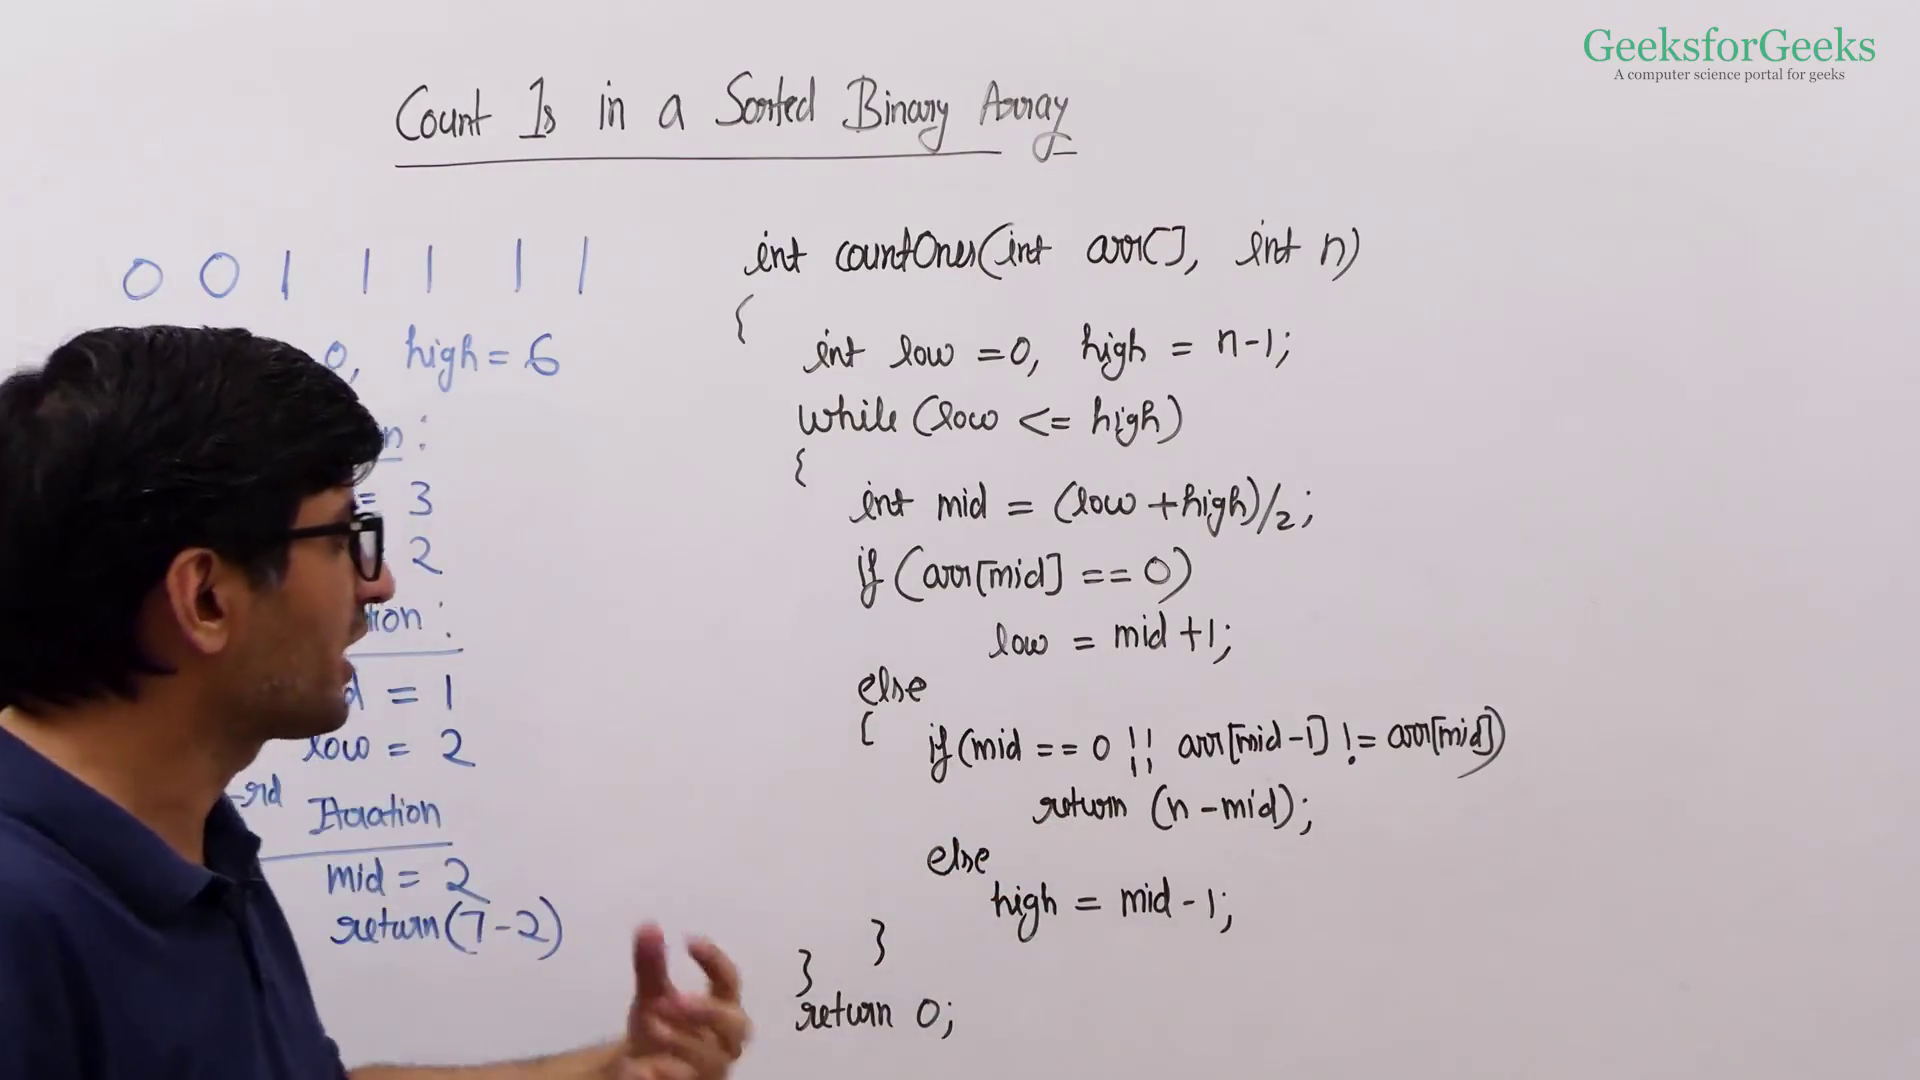 GeeksforGeeks
A computer science portal for geeks
Count 1s in a Sorted Binary Array
0 0 1 1 1 1 1
0, high = 6
n:
= 3
2
tion:
d = 1
low = 2
-rd Iteration
mid = 2
return (7-2)
int countOnes(int arr[], int n)
{
int low = 0, high = n-1;
while (low <= high)
{
int mid = (low + high)/2;
if (arr[mid] == 0)
low = mid + 1;
else
{ if (mid == 0 || arr[mid-1] != arr[mid])
return (n - mid);
else
high = mid - 1;
}
}
return 0;